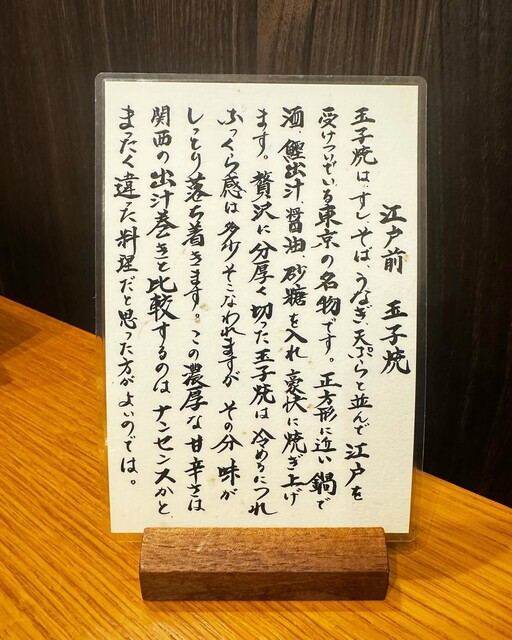 江戸前 玉子焼
玉子焼は、すし、そば、うなぎ、天ぷらと並んで江戸を
受けついでいる東京の名物です。正方形に近い鍋で
酒、鰹出汁、醤油、砂糖を入れ豪快に焼き上げ
ます。贅沢に分厚く切った玉子焼は冷めるにつれ
ふっくら感は多少そこなわれますが その分味が
しっとり落ち着きます。この濃厚な甘辛さは
関西の出汁巻きと比較するのはナンセンスかと
まったく違った料理だと思った方がよいのでは。